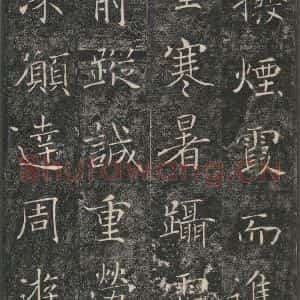 撥煙霞而進
重寒暑躡霜
前蹤誠重勞
深願達周遊
Shufawang.cn